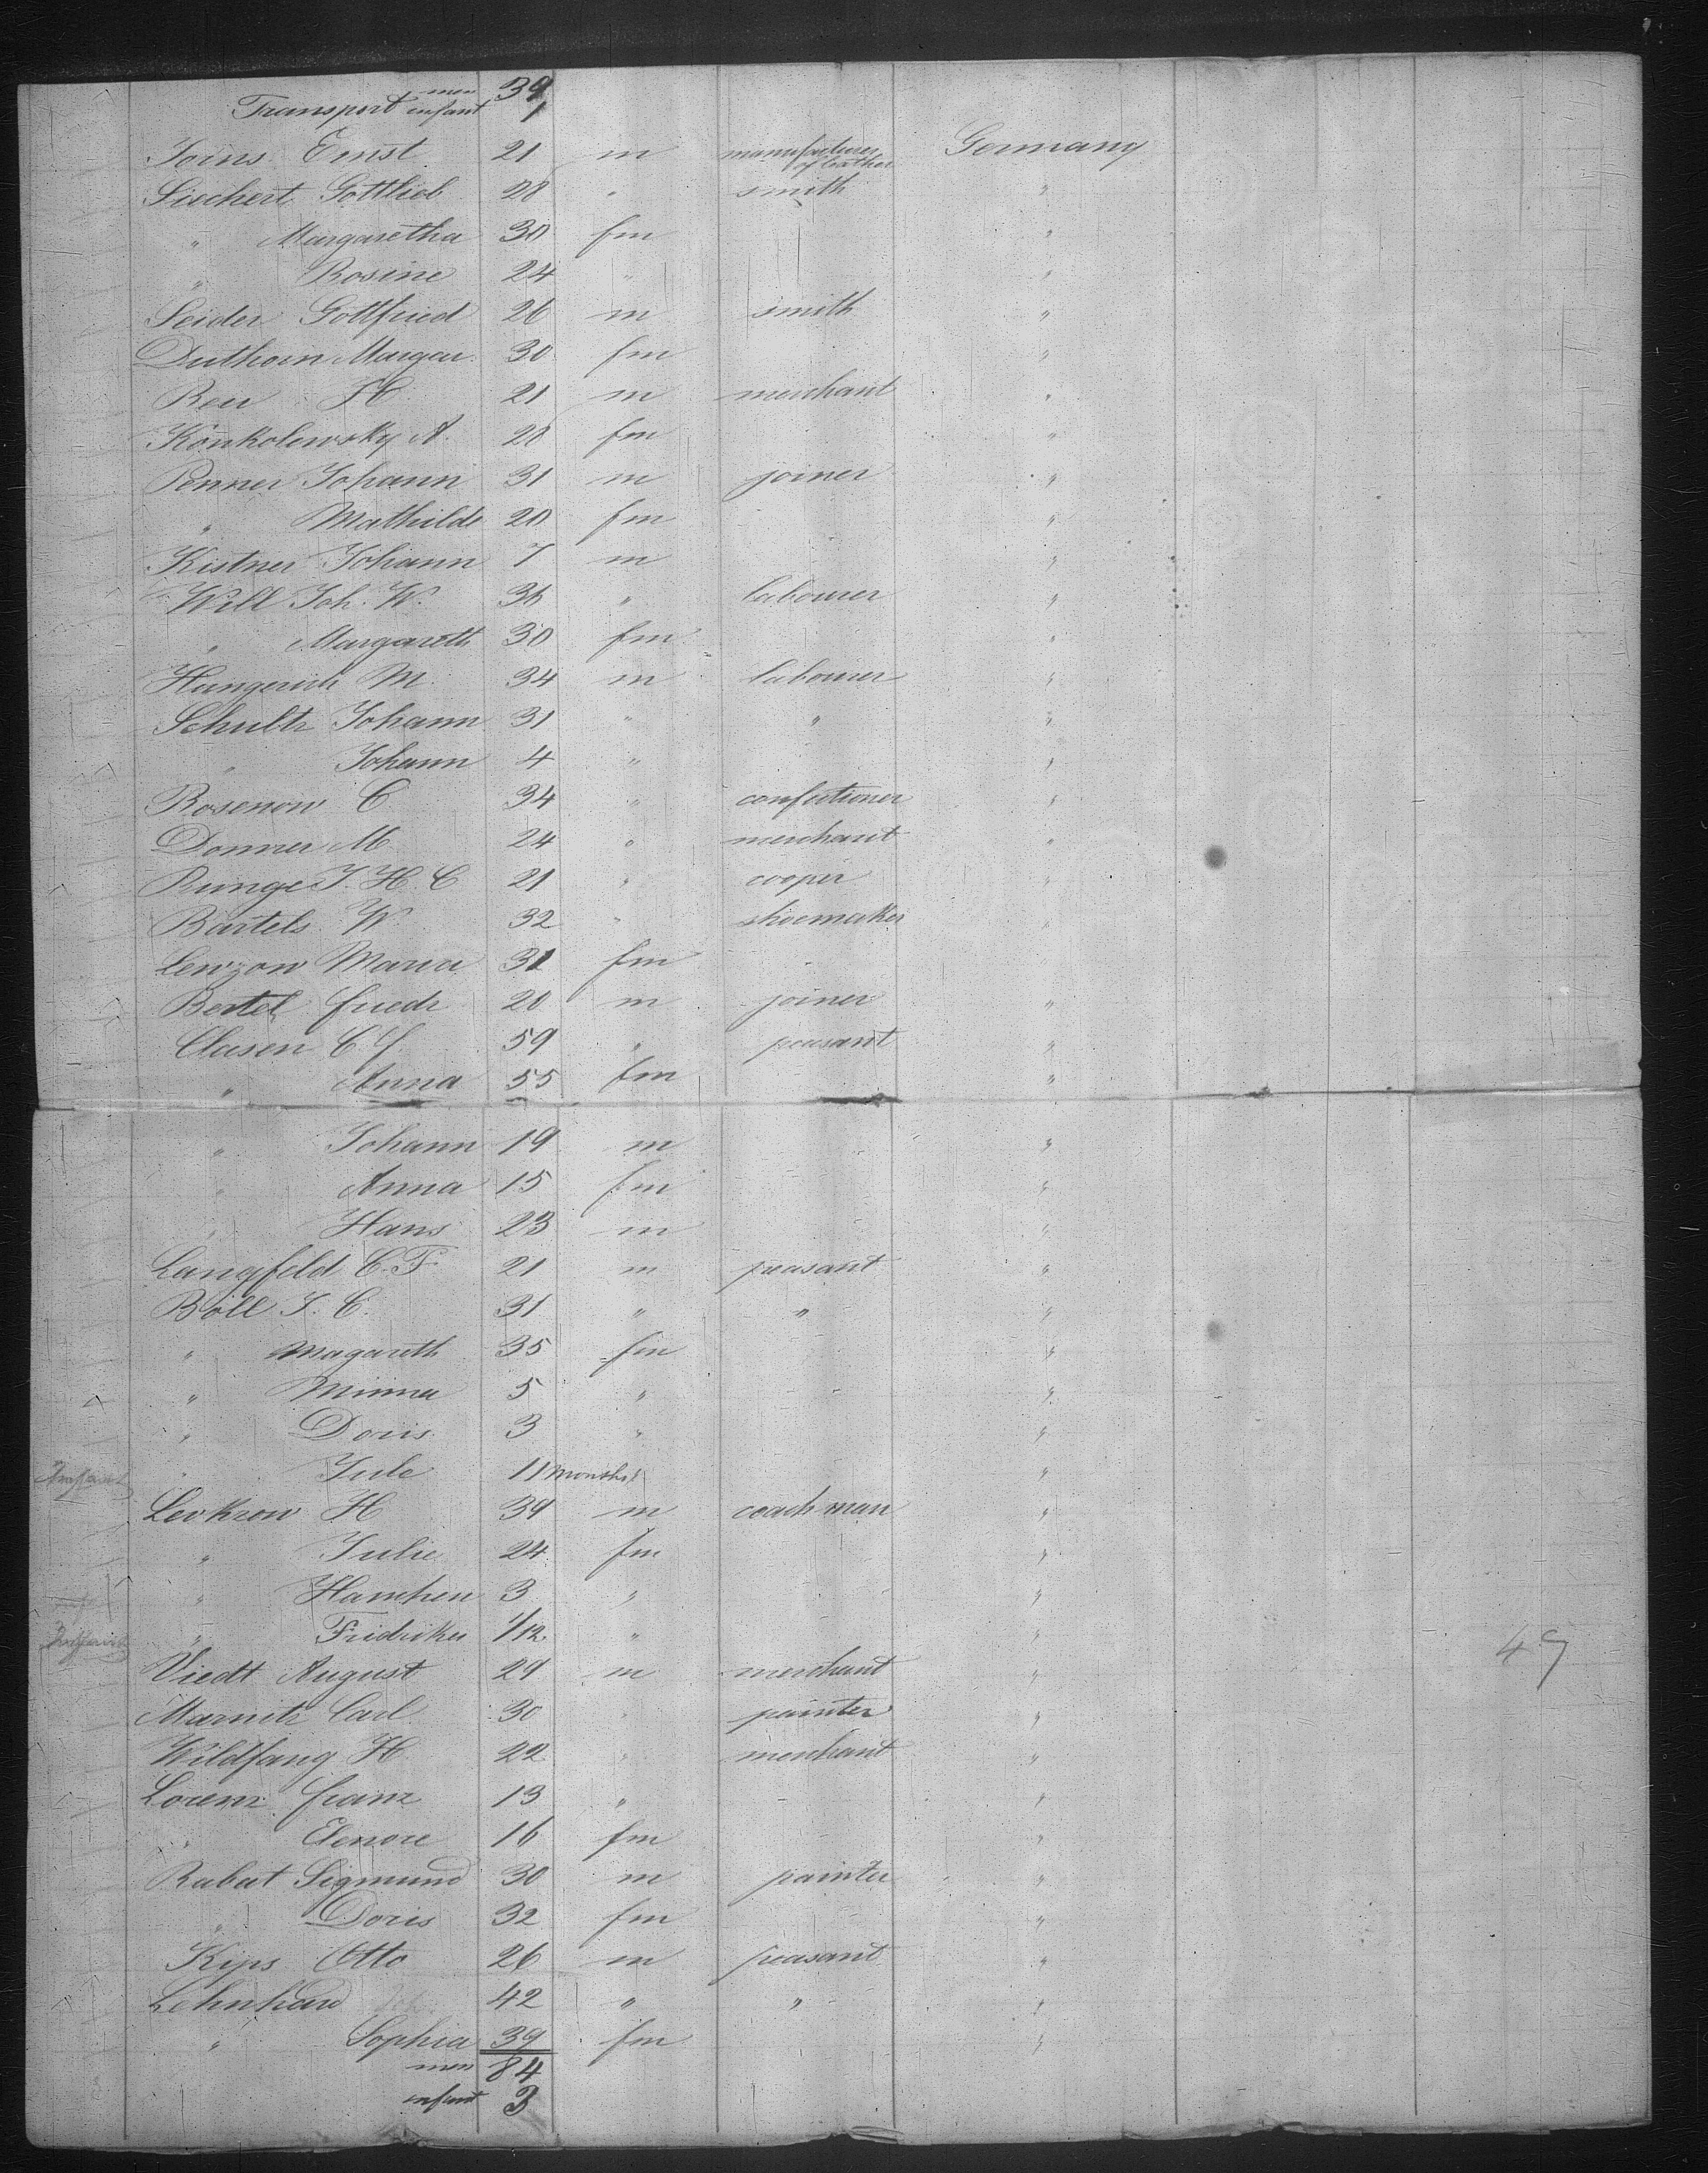 men 39
Transport infant 1
Joins Ernst 21 m manufacturer of leather Germany
Siechert Gottlieb 28 " smith "
" Margaretha 30 fm "
" Rosine 24 " "
Seider Gottfried 26 m smith "
Duthorn Margar. 30 fm "
Reu H. 21 m merchant "
Konkolewsky A. 28 fm "
Penner Johann 31 m joiner "
" Mathilde 20 fm "
Kistner Johann 7 m "
Will Joh. W. 36 " labourer "
" Margareth 30 fm "
Hungerich M. 34 m labourer "
Schultz Johann 31 " " "
" Johann 4 " "
Rosenow C 34 " confectioner "
Donner M 24 " merchant "
Runge J. H. C 21 " cooper "
Bartels W. 32 " shoemaker "
Lewzow Maria 31 fm
Bertel Friedr 20 m joiner "
Clasen C J. 59 " peasant "
" Anna 55 fm "
" Johann 19 m "
" Anna 15 fm "
" Hans 23 m "
Langfeld C. F. 21 m peasant "
Böll J. C. 31 " " "
" Magareth 35 fm "
" Minna 5 " "
" Doris 3 " "
Infant " Jule 11 months "
Levkrow H 39 m coachman "
" Julie 24 fm "
" Hannchen 3 " "
Infant " Fridrike 1/12 " "
Viedt August 29 m merchant "
Marnitz Carl 30 " painter "
Wildfang H 22 " merchant "
49
Lorenz Franz 13 " "
" Elenore 16 fm "
Rabat Sigmund 30 m painter "
" Doris 32 fm "
Kips Otto 26 m peasant "
Lehnhard 42 " " "
" Sophia 39 fm "
men 84
infant 3